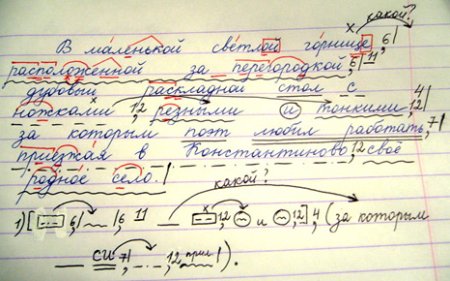 какой?
В маленькой светлой горнице, 6/
расположенной за перегородкой, 6/ 11
дубовый раскладной стол с 4/
ножками, 12, резными и тонкими, 12/
за которым поэт любил работать, 7/
приезжая в Константиново, 12 своё
родное село. /
какой?
1) [ , 6/ /6 11 12, и , 12/ ], 4, (за которым
си 7/, 12, прил / ).